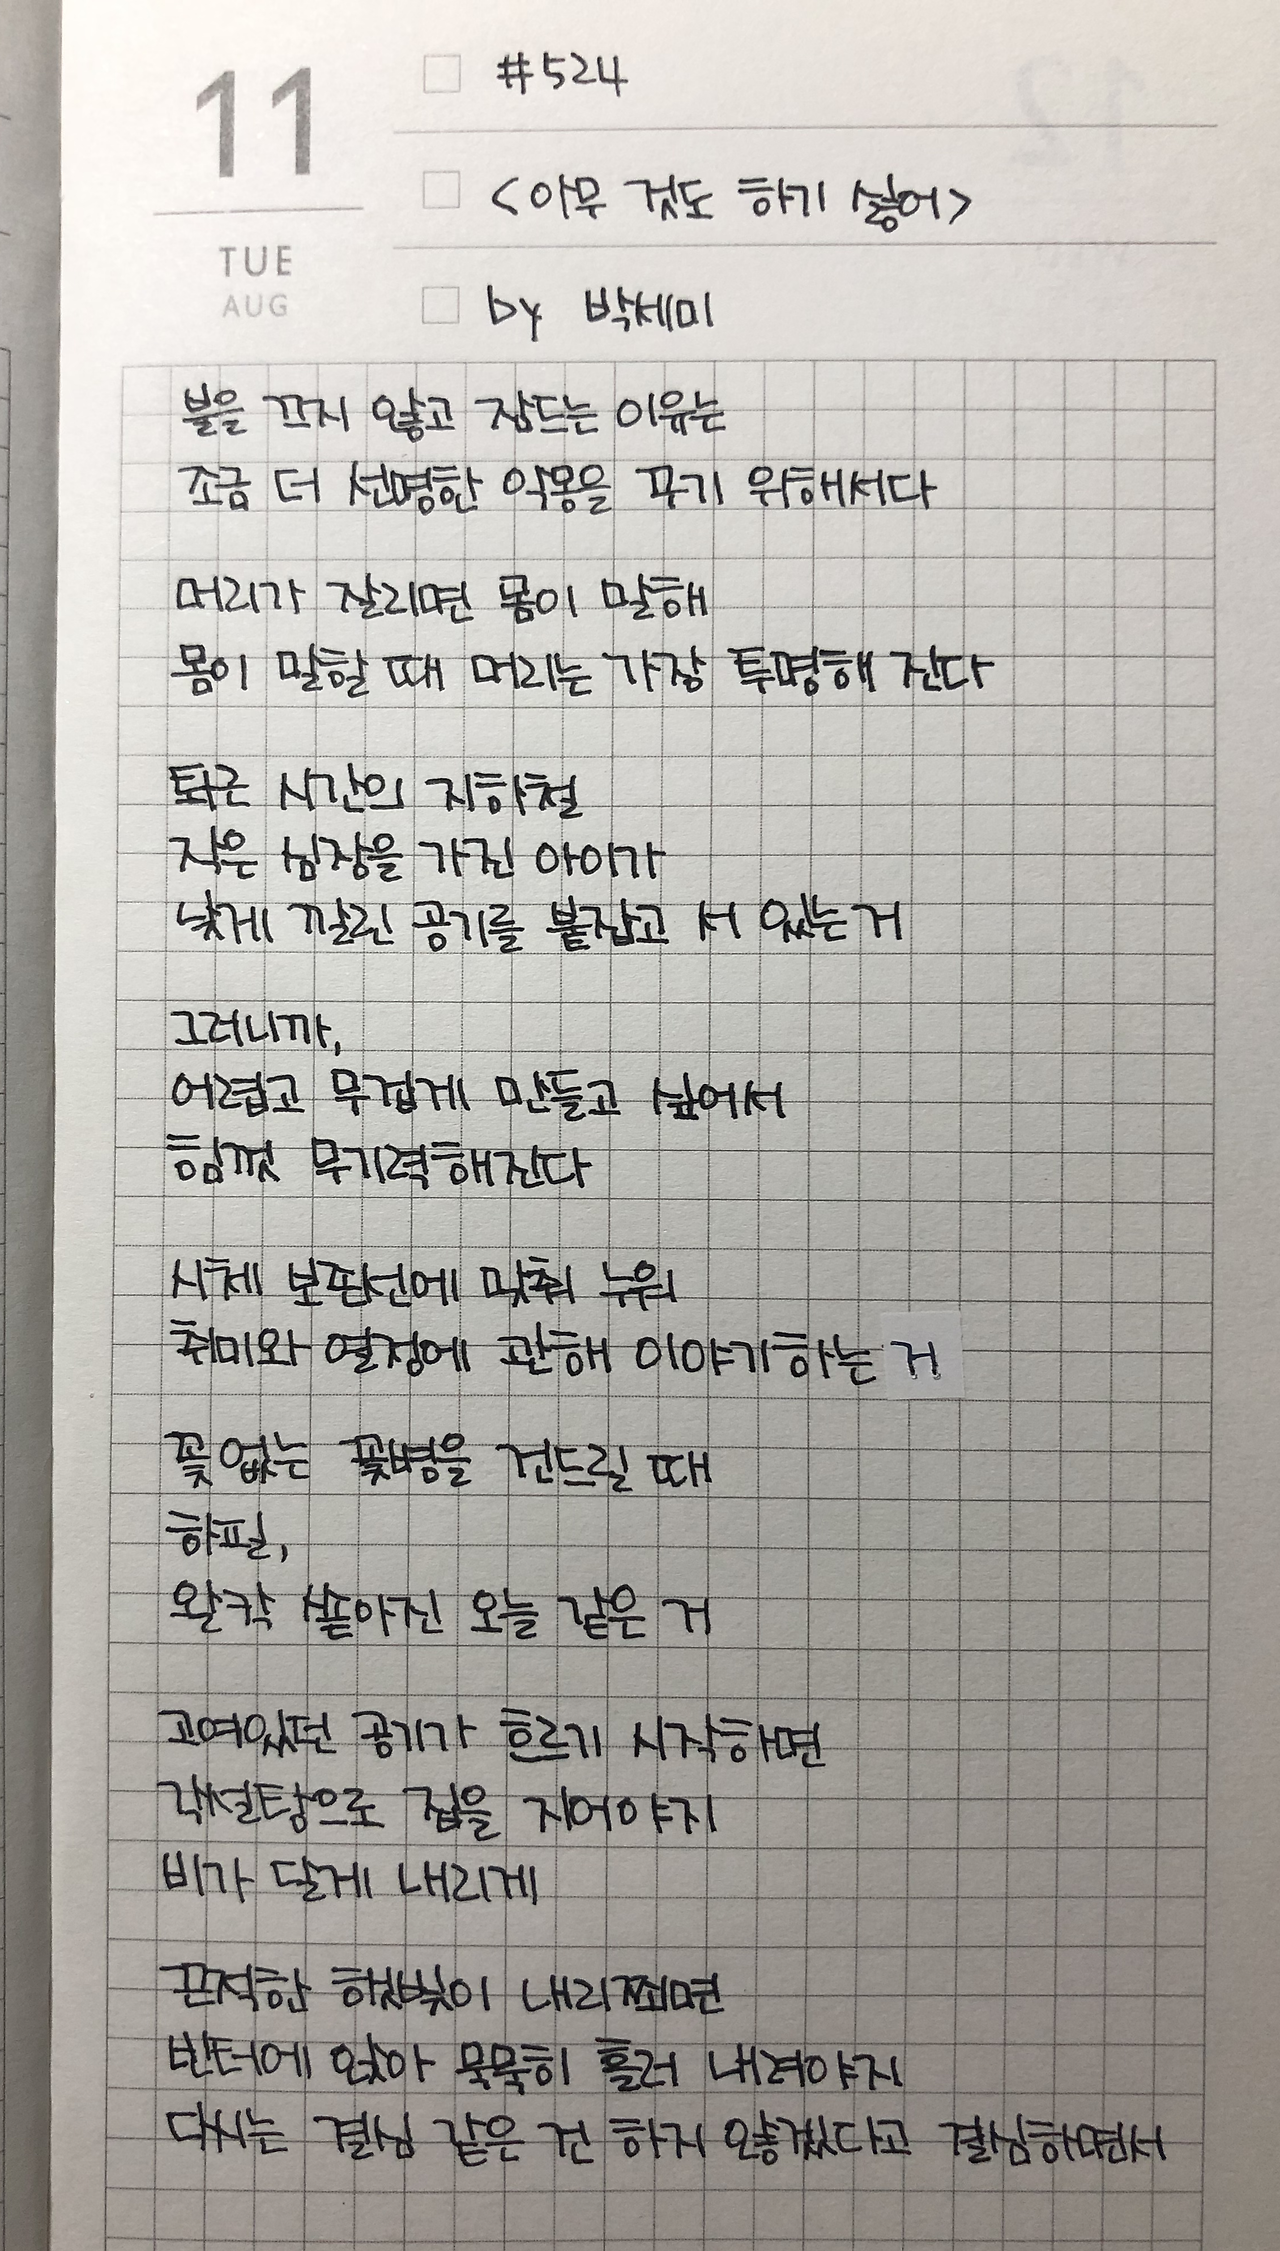 11
TUE
AUG
#524
<아무 것도 하기 싫어>
by 박세미
불을 끄지 않고 잠드는 이유는
조금 더 선명한 악몽을 꾸기 위해서다
머리가 잘리면 몸이 말해
몸이 말할 때 머리는 가장 투명해 진다
퇴근 시간의 지하철
작은 심장을 가진 아이가
낮게 깔린 공기를 붙잡고 서 있는 거
그러니까,
어렵고 무겁게 만들고 싶어서
힘껏 무기력해진다
시체 보존선에 맞춰 누워
취미와 열정에 관해 이야기하는 거
꽃 없는 꽃병을 건드릴 때
하필,
왈칵 쏟아진 오늘 같은 거
고여있던 공기가 흐르기 시작하면
각설탕으로 집을 지어야지
비가 달게 내리게
끈적한 햇빛이 내리쬐면
반터에 앉아 묵묵히 흘러 내려야지
다시는 결심 같은 건 하지 않겠다고 결심하면서